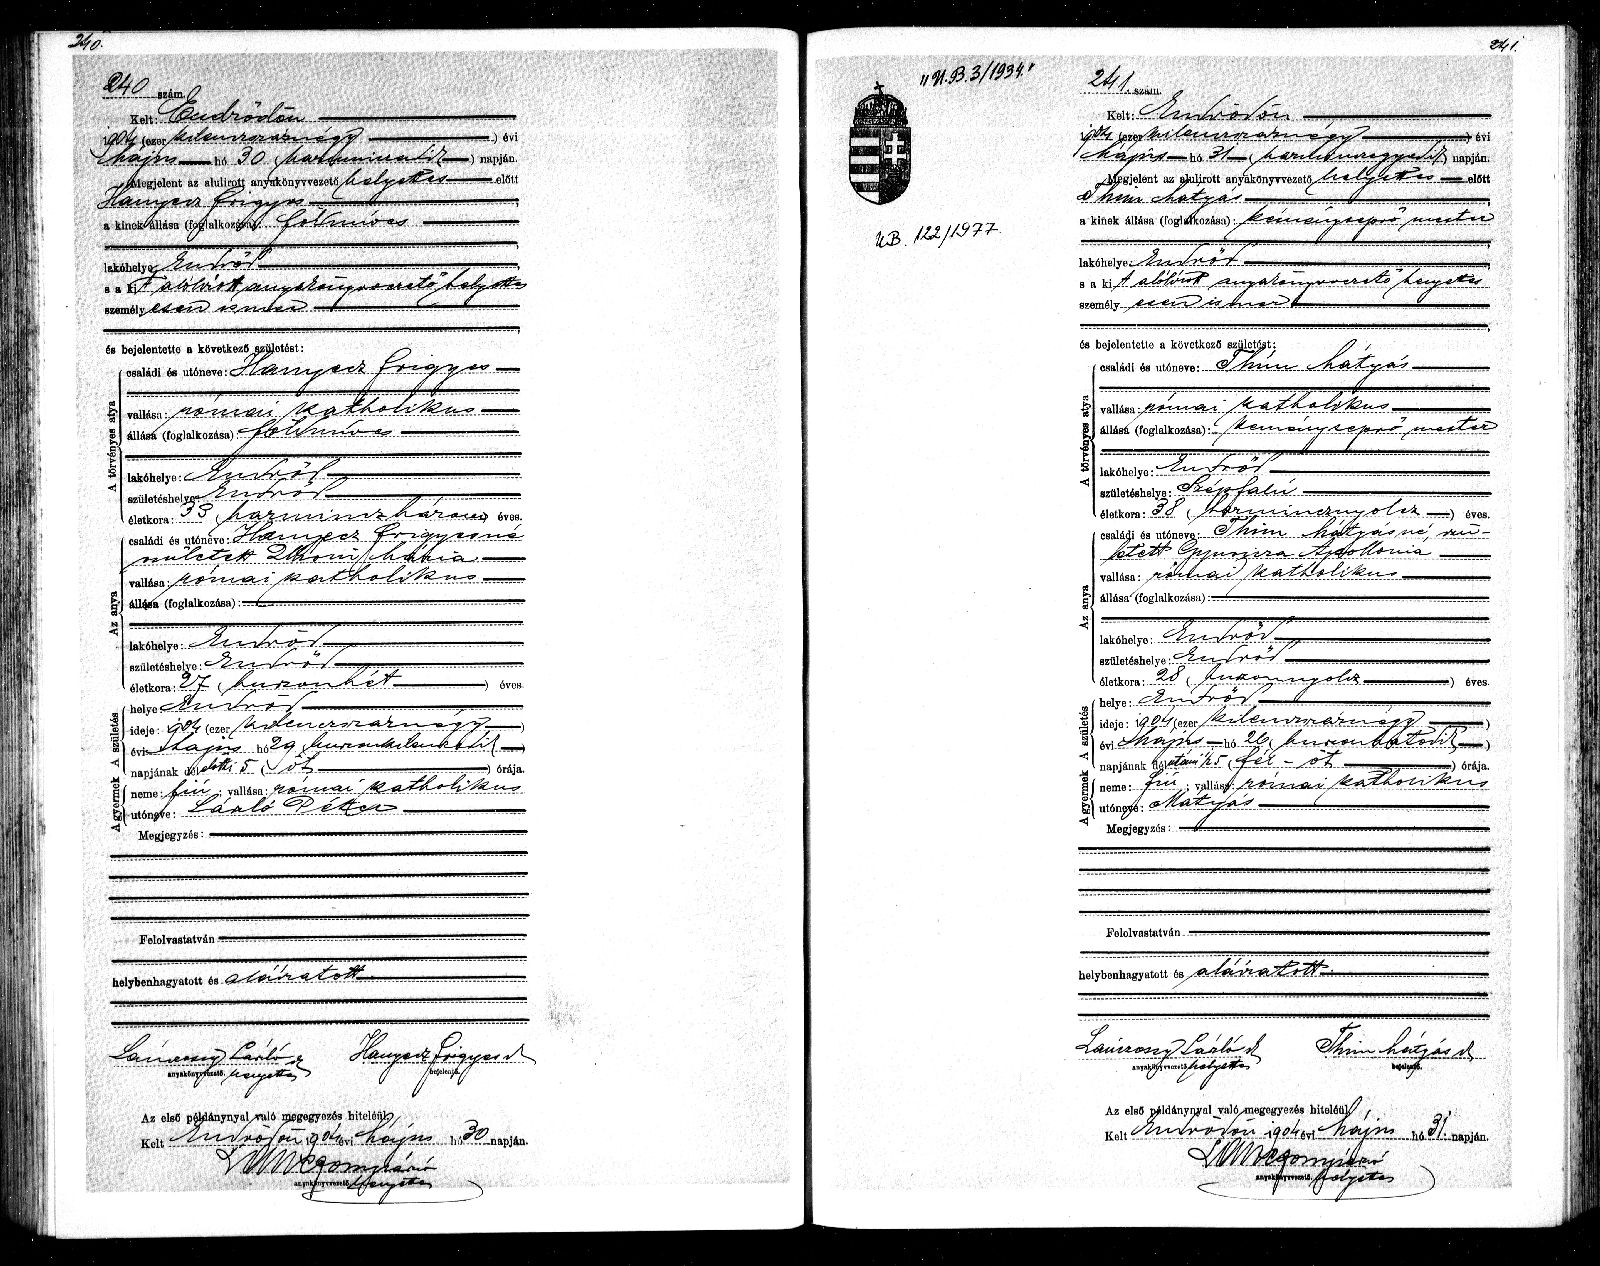 240.
240 szám.
Kelt: Endrődön
1904 (ezer kilenczszáznégy) évi
Május hó 30 (harminczadik) napján.
Megjelent az alulirott anyakönyvvezető helyettes előtt
Hanyecz Frigyes
a kinek állása (foglalkozása): földmíves
lakóhelye: Endrőd
s a ki t alulírott anyakönyvvezető helyettes
személy esen ismer
és bejelentette a következő születést:
A törvényes atya
családi és utóneve: Hanyecz Frigyes
vallása: római katholikus
állása (foglalkozása): földmíves
lakóhelye: Endrőd
születéshelye: Endrőd
életkora: 33 (harminczhárom) éves.
Az anya
családi és utóneve: Hanyecz Frigyesné
született Mária
vallása: római katholikus
állása (foglalkozása):
lakóhelye: Endrőd
születéshelye: Endrőd
életkora: 27 (huszonhét) éves
A születés
helye: Endrőd
ideje: 1904 (ezer kilenczszáznégy)
évi Május hó 29 (huszonkilenczedik)
napjának délelőtti 5 (öt) órája.
A gyermek
neme: fiú; vallása: római katholikus
utóneve: László Péter
Megjegyzés:
Felolvastatván
helybenhagyatott és aláíratott
László Hanyecz Frigyes
anyakönyvvezető. helyettes bejelentő.
Az első példánynyal való megegyezés hiteléül
Kelt Endrődön 1904 évi Május hó 30 napján.
anyakönyvvezető. helyettes
241.
"U.B.3/1934."
U.B. 122/1977.
241. szám.
Kelt: Endrődön
1904 (ezer kilenczszáznégy) évi
Május hó 31 (harminczegyedik) napján.
Megjelent az alulirott anyakönyvvezető helyettes előtt
Thim Mátyás
a kinek állása (foglalkozása): kéményseprő mester
lakóhelye: Endrőd
s a ki t alólírott anyakönyvvezető helyettes
személy esen ismer
és bejelentette a következő születést:
A törvényes atya
családi és utóneve: Thim Mátyás
vallása: római katholikus
állása (foglalkozása): kéményseprő mester
lakóhelye: Endrőd
születéshelye: Szépfalú
életkora: 38 (harmincznyolcz) éves.
Az anya
családi és utóneve: Thim Mátyásné, szü-
letett Apollonia
vallása: római katholikus
állása (foglalkozása):
lakóhelye: Endrőd
születéshelye: Endrőd
életkora: 28 (huszonnyolcz) éves.
A születés
helye: Endrőd
ideje: 1904 (ezer kilenczszáznégy)
évi Május hó 26 (huszonhatodik)
napjának délutáni ½5 (fél-öt) órája.
A gyermek
neme: fiú; vallása: római katholikus
utóneve: Mátyás
Megjegyzés:
Felolvastatván
helybenhagyatott és aláíratott
László Thim Mátyás
anyakönyvvezető. helyettes bejelentő.
Az első példánynyal való megegyezés hiteléül
Kelt Endrődön 1904 évi Május hó 31 napján.
anyakönyvvezető. helyettes